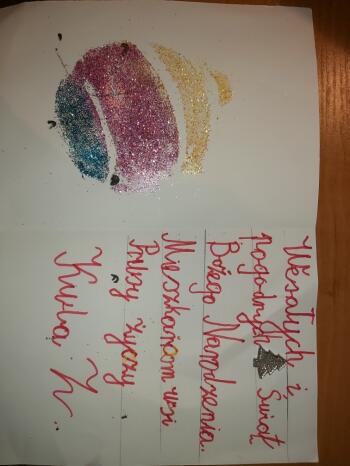 Wesołych i
pogodnych Świąt
Bożego Narodzenia.
Mieszkańcom wsi
życzy
Kuba K.